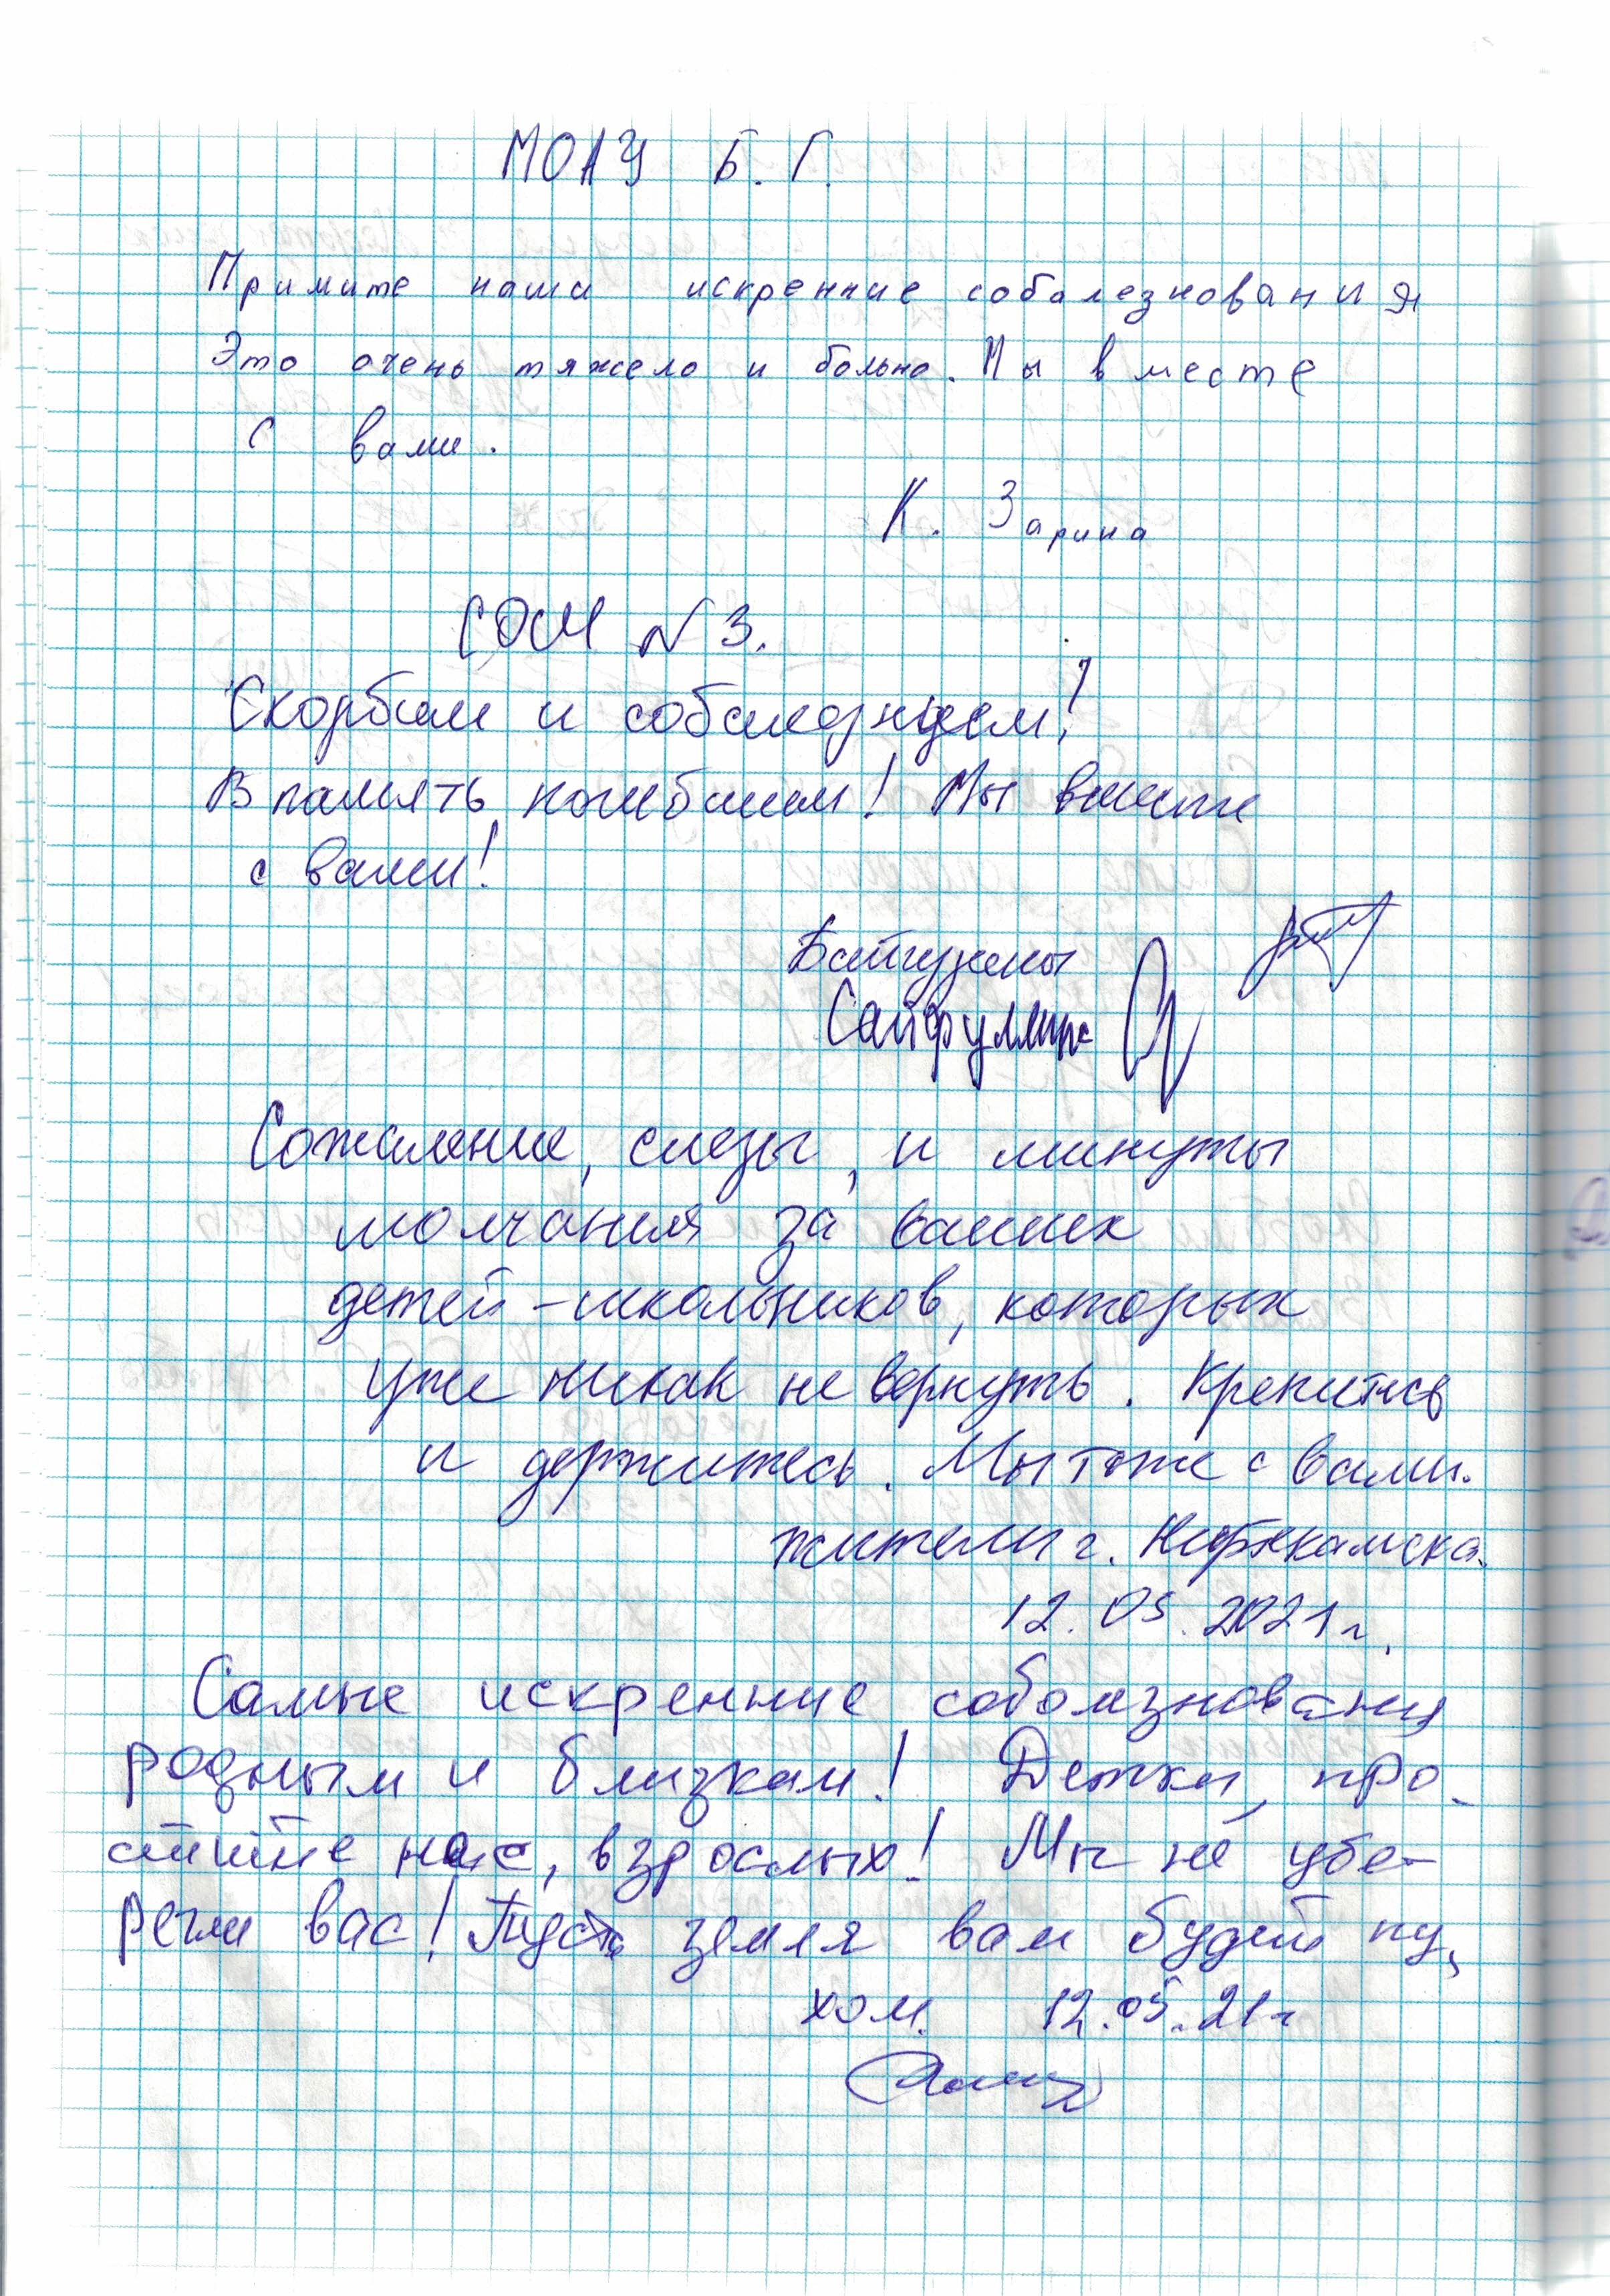 МОАУ Б.Г.
Примите наши искренние соболезнования
Это очень тяжело и больно. Мы вместе
с вами.
К. Зарина
СОШ N 3.
Скорбим и соболезнуем!
В память погибшим! Мы вместе
с вами!
Батгузины
Сайфуллина
Сожаление, слезы, и минуты
молчания за ваших
детей - школьников, которых
уже никак не вернуть. Крепитесь
и держитесь. Мы тоже с вами.
жители г. Нефтекамска.
12.05.2021г.
Самые искренние соболезнования
родным и близким! Детки, про-
стите нас, взрослых! Мы не убе-
регли вас! Пусть земля вам будет пу-
хом. 12.05.21г